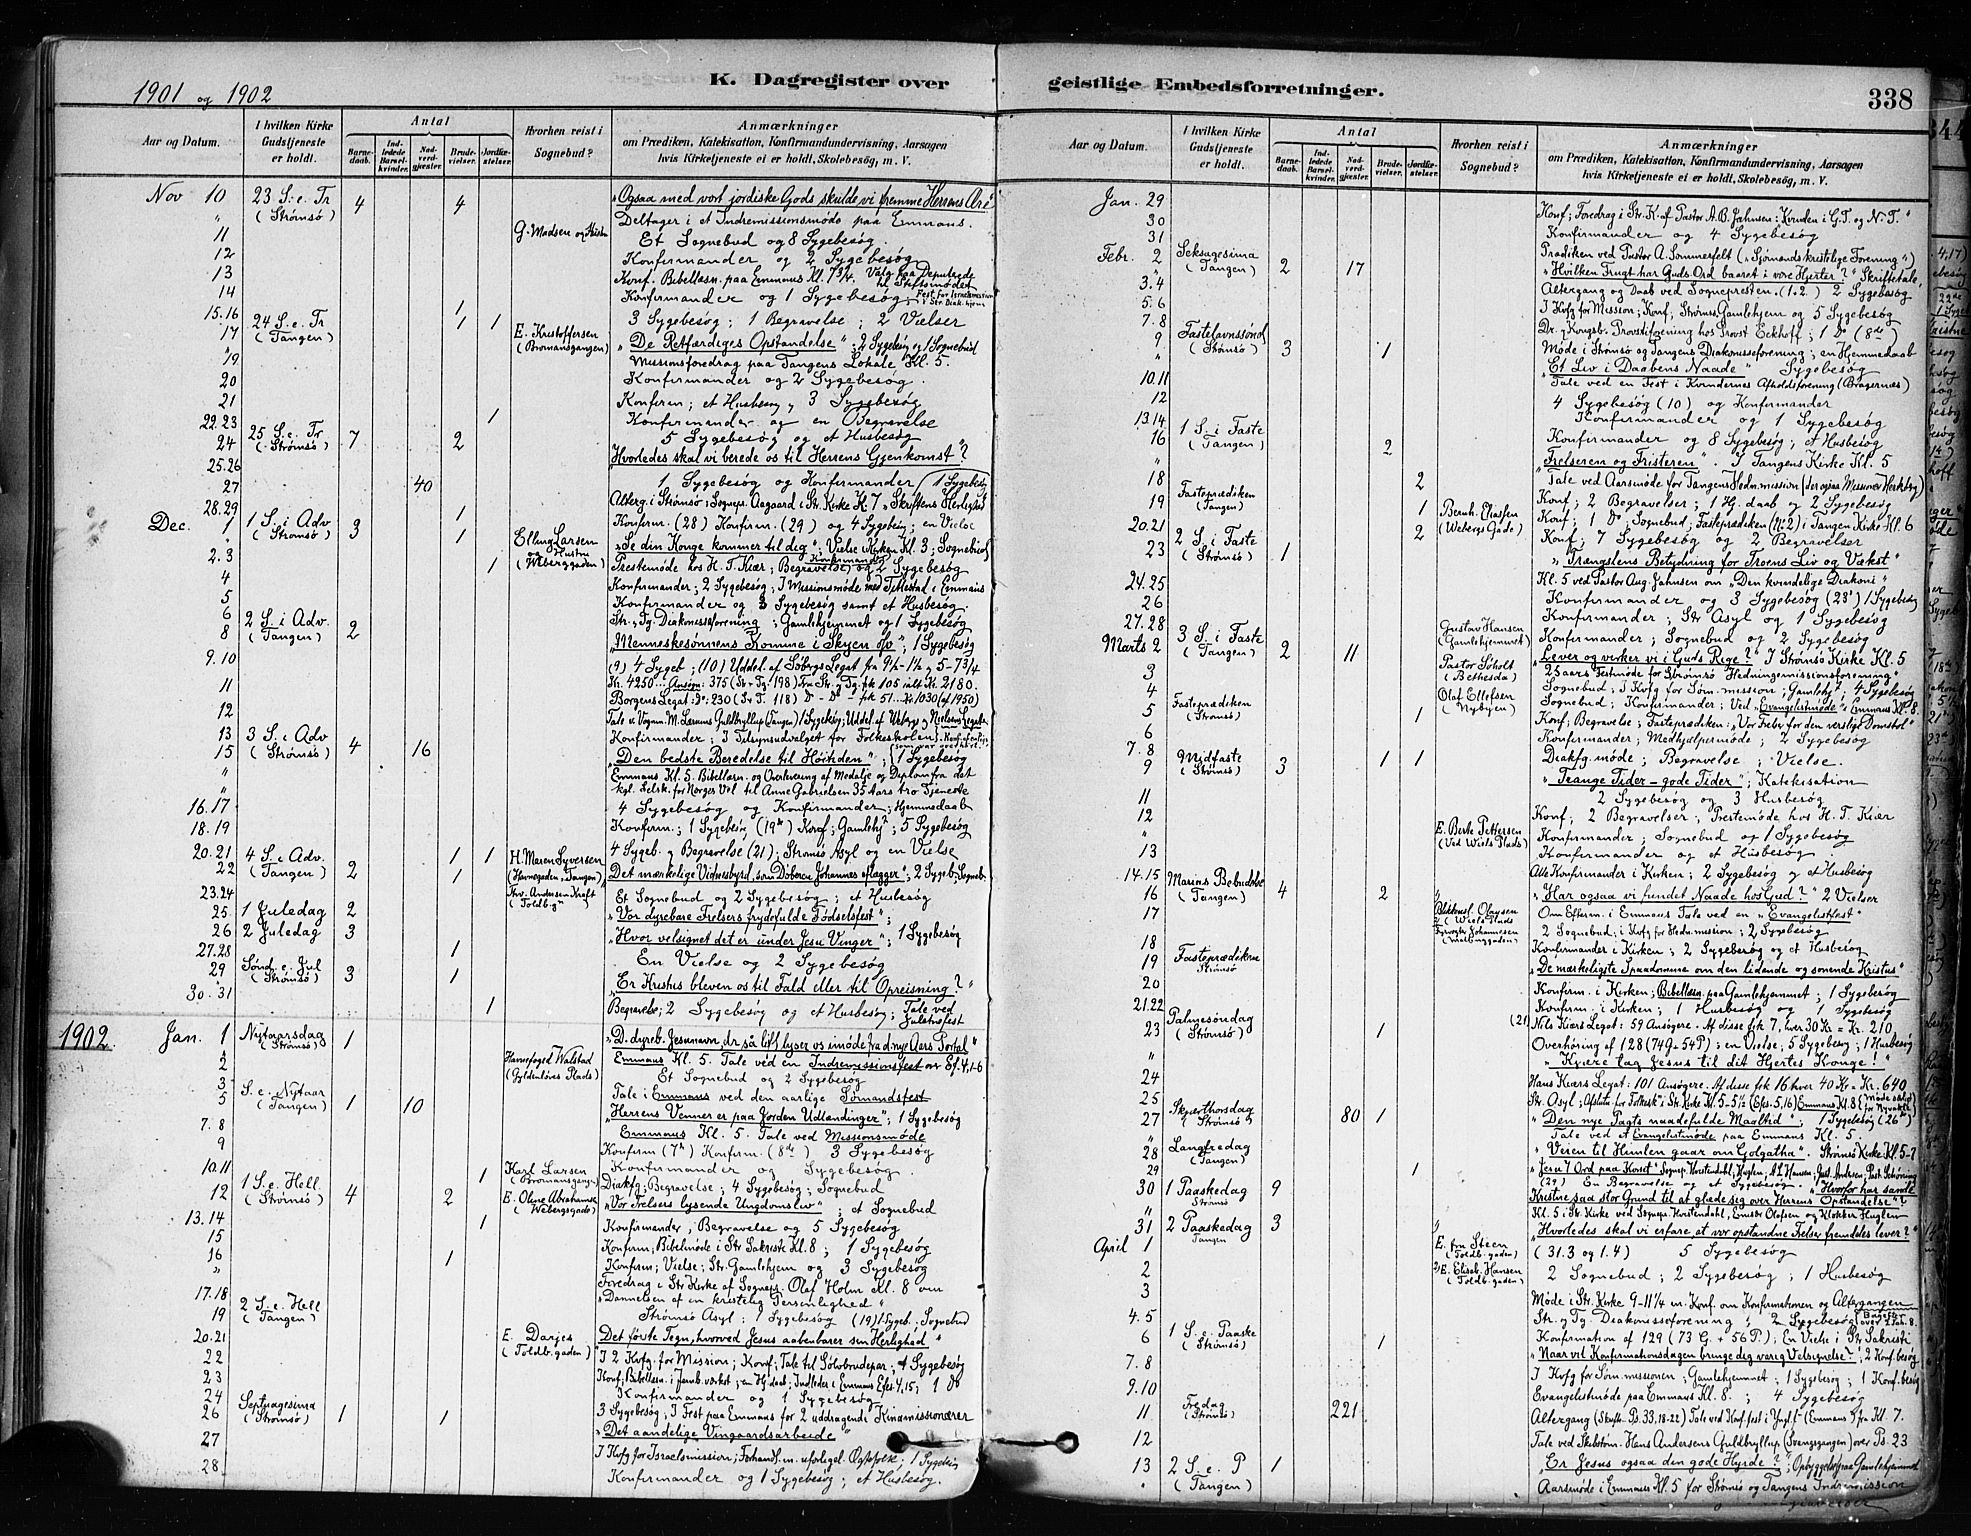 1901 og 1902
K. Dagregister over
Aar og Datum.
I hvilken Kirke Gudstjeneste er holdt.
Antal
Barnedaab.
Indledede Barselkvinder.
Nadverdgjæster.
Brudevielser.
Jordfæstelser.
Hvorhen reist i Sognebud?
Anmærkninger
om Prædiken, Katekisation, Konfirmandundervisning, Aarsagen
hvis Kirketjeneste ei er holdt, Skolebesøg, m. V.
Nov 10 23 S. e. Tr (Strømsø) 4 4 "Ogsaa med vort jordiske Gods skulde vi fremme Herrens Ære"
" Deltager i et Indremissionsmøde paa Emmaus.
11 G. Madsen og Hustru Et Sognebud og 8 Sygebesøg.
12 Konfirmander og 2 Sygebesøg
13 Konf. Bibellæsn. paa Emmaus Kl. 7 3/4. Valg paa Deputerede til Stiftsmødet
14 Konfirmander og 1 Sygebesøg
15.16 1 3 Sygebesøg; 1 Begravelse; 2 Vielser
17 24 S. e. Tr (Tangen) 1 1 E. Kristoffersen (Bromansgangen) "De Retfærdiges Opstandelse"; 2 Sygebesøg og 1 Sognebud
" Missionsforedrag paa Tangens Lokale Kl. 5.
19 Konfirmander og 2 Sygebesøg.
20
21 Konfirm; et Husbesøg, 3 Sygebesøg
22.23 1 Konfirmander og en Begravelse
5 Sygebesøg og et Husbesøg
24 25 S. e. Tr (Strømsø) 7 2 Hvorledes skal vi berede os til Herrens Gjenkomst?
25.26 1 Sygebesøg og Konfirmander (1 Sygebesøg
27 40 Alterg. i Strømsø; Sognepr. Aagaard i Str. Kirke Kl. 7 "Skriftens Herlighed
28.29 1 Konfirm. (28) Konfirm. (29) og 4 Sygebesøg; en Vielse
Dec. 1 1 S. i Adv (Strømsø) 3 1 Elling Larsen og Hustru (Weberggaden) "Se din Konge kommer til dig"; Vielse Kirken Kl. 3; Sognebud
2.3 1 Prestemøde hos H. T. Kiær; Begravelse og 2 Sygebesøg
4 Konfirmander; 2 Sygebesøg; I Missionsmøde med Tilkestad i Emmaus
5 Konfirmander og 3 Sygebesøg samt et Husbesøg.
6 Str. & Tg. Diakonisseforening; Gamlehjemmet og 1 Sygebesøg
8 2 S. i Adv. (Tangen) 2 "Menneskesønnens Komme i Skyen osv"; 1 Sygebesøg
9.10 (9) 4 Sygeb; (10) Uddel. af Søbergs Legat fra 9 1/2-1 1/2 og 5-7 3/4
Kr. 4250... Ansøgn: 375 (Str + Tg. 198) Fra Str. & Tg. fik 105 ialt Kr. 2180.
11 Borgens Legat: Do: 230 (S+T. 118) Do - Do - fik 51... Kr 1030 (af 1950)
12 Tale v. Vognm. M. Larsens Guldbryllup (Tangen) 1 Sygebesøg; Uddel. af Webergs og Nielsens Legater
13 Konfirmander; I Tilsynsudvalget for Folkeskolen
15 3 S. i Adv (Strømsø) 4 16 "Den bedste Beredelse til Høitiden"; 1 Sygebesøg
" Emmaus Kl. 5. Bibellæsn. og Overlevering af Medalje og Diplom fra det
" kgl. Selsk. for Norges Vel til Anne Gabrielsen 35 Aars tro Tjeneste
16.17 4 Sygebesøg og Konfirmander; Hjemmedaab
18.19 Konfirm; 1 Sygebesøg (19de) Konf; Gamlehj; 5 Sygebesøg
20.21 1 1 4 Sygeb. og Begravelse (21); Strømsø Asyl og en Vielse
22 4 S. i Adv. (Tangen) 2 1 H. Maren Syversen (Havnegaden, Tangen) Det mærkelige Vidnesbyrd, som Døberen Johannes aflægger"; 2 Sygeb; Sogneb
23.24 Thv. Andersen Kraft (Toldb.g) Et Sognebud og 2 Sygebesøg; et Husbesøg
25 1 Juledag 2 "Vor dyrebare Frelsers frydefulde Fødselsfest";
26 2 Juledag 3 "Hvor velsignet det er under Jesu Vinger"; 1 Sygebesøg
27.28 1 En Vielse og 2 Sygebesøg
29 Sønd. e. Jul (Strømsø) 3 1 "Er Kristus bleven os til Fald eller til Opreisning?"
30.31 1 Begravelse; 2 Sygebesøg og et Husbesøg; Tale ved Juletræfest
1902 Jan. 1 Nytaarsdag (Strømsø) 1 "D. dyreb. Jesunavn, der saa lifl. lyser os imøde fra d. nye Aars Portal"
" Emmaus Kl. 5. Tale ved en Indremissionsfest over Ef. 4,1-6
2 Havnefoged Walstad (Gyldenløves Plads) Et Sognebud og 2 Sygebesøg
3 Tale i Emmaus ved den aarlige Sømandsfest
5 S. e. Nytaar (Tangen) 1 10 "Herrens Venner er paa Jorden Udlændinger"; 1 Sygebesøg
" Emmaus Kl. 5. Tale ved Missionsmøde
7.8 Konfirm (7de) Konfirm. (8de) 3 Sygebesøg
9 Konfirmander og Sygebesøg.
10.11 1 Karl Larsen (Bromansgangen) Diakfg; Begravelse; 4 Sygebesøg; Sognebud
12 1 S. e. Hell. (Strømsø) 4 2 E. Oline Abrahamsen (Webergsgade) "Vor Frelsers lysende Ungdomsliv"; et Sognebud
13.14 1 Konfirmander, Begravelse og 5 Sygebesøg
15 Konfirm; Bibelmøde i Str Sakristi Kl. 8; 1 Sygebesøg
16 1 Konfirm; Vielse; Str. Gamlehjem og 3 Sygebesøg
" Foredrag i Str Kirke af Sognepr. Olaf Holm Kl. 8 om
"Dannelsen af en kristelig Personlighed"
17.18 Strømsø Asyl; 1 Sygebesøg (19) 1 Sygeb. Sognebud
19 2 S. e. Hell (Tangen) E. Darjes (Toldb.gaden) Det første Tegn, hvorved Jesus aabenbarer sin Herlighed"
20.21 "I 2 Kvfg. for Mission; Konf; Tale til Sølvbrudepar; 4 Sygebesøg
22 Konf; Bibellæsn. i Jernb. værket; en Hj. daab; Indleder i Emmaus Efes 4,15; 1 do
23 Konfirmander og 1 Sygebesøg
24 3 Sygebesøg; I Fest paa Emmaus for 2 uddragende Kinamissionærer
26 Septuagesima (Strømsø) 1 1 "Det aandelige Vingaardsarbeide"
27 I Kvfg for Israelsmission; Forhandl. m. uforligel. Ægtefolk; 1 Sygebesøg
28 Konfirmander og 1 Sygebesøg; et Husbesøg.
geistlige Embedsforretninger.
338
Aar og Datum.
I hvilken Kirke Gudstjeneste er holdt.
Antal
Barnedaab.
Indledede Barselkvinder.
Nadverdgjæster.
Brudevielser.
Jordfæstelser.
Hvorhen reist i Sognebud?
Anmærkninger
om Prædiken, Katekisation, Konfirmandundervisning, Aarsagen
hvis Kirketjeneste ei er holdt, Skolebesøg, m. V.
Jan. 29 Konf; Foredrag i Str. K. af Pastor A. B. Jahnsen: Kvinden i G. T. og N. T."
30 Konfirmander og 4 Sygebesøg
31 Prædiken ved Pastor A. Sommerfelt ("Sjømands kristelige Forening")
Febr. 2 Seksagesima (Tangen) 2 17 "Hvilken Frugt har Guds Ord baaret i vore Hjerter?" Skriftetale,
" Altergang og Daab ved Sognepresten. (1+2) 2 Sygebesøg
3.4 I Kvfg for Mission; Konf; Strømsø Gamlehjem og 5 Sygebesøg
5.6 Dr. & Kongsb. Provstiforening hos Provst Eckhoff; 1 Do (8de)
7.8 Møde i Strømsø og Tangens Diakonisseforening; en Hjemmedaab
9 Fastelavnssønd (Strømsø) 3 1 "Et Liv i Daabens Naade" Sygebesøg
" Tale ved en Fest i Kvindernes Afholdsforening (Bragernæs)
10.11 4 Sygebesøg (10) og Konfirmander
12 Konfirmander og 1 Sygebesøg
13.14 Konfirmander og 8 Sygebesøg; et Husbesøg
16 1 S. i Faste (Tangen) 2 "Frelseren og Fristeren". I Tangens Kirke Kl. 5
" Tale ved Aarsmøde for Tangens Hedn.mission
18 2 Konf; 2 Begravelser; 1 Hj. daab og 2 Sygebesøg
19 Fasteprædiken (Tangen) 1 Bernh. Eliassen (Webergs Gade) Konf; 1 Do; Sognebud; Fasteprædiken (No 2) i Tangen Kirke Kl. 6
20.21 2 Konf; 7 Sygebesøg og 2 Begravelser
23 2 S. i Faste (Strømsø) 1 "Trængslens Betydning for Troens Liv og Vækst"
Kl. 5 ved Pastor Aug. Jahnsen om "Den kvindelige Diakoni"
24.25 Konfirmander og 3 Sygebesøg (23de) 1 Sygebesøg
26 Konfirmander; Str Asyl og 1 Sygebesøg
27.28 Gustav Hansen (Gamlehjemmet) Konfirmander; Sognebud og 2 Sygebesøg
Marts 2 3 S. i Faste (Tangen) 2 11 Pastor Søholt (Bethesda) "Lever og virker vi i Guds Rige?" I Strømsø Kirke Kl. 5
25 aars Festmøde for Strømsø Hedningemissionsforening"
3 Sognebud; I Kvfg for Søm. mission; Gamlehj; 4 Sygebesøg
4 Olaf Ellefsen (Nybyen) Sognebud; Konfirmander; Ved "Evangelistmøde" Emmaus Kl. 8.
5 Fasteprædiken (Strømsø) 1 Konf; Begravelse; Fasteprædiken: "Vor Frelser for den verslige Domstol"
6 Konfirmander; Medhjælpermøde; 2 Sygebesøg
7.8 1 1 Diakfg.møde; Begravelse; Vielse.
9 Midfaste (Strømsø) 3 "Trange Tider - gode Tider"; Katekisation
2 Sygebesøg og 3 Husbesøg
11 Konf; 2 Begravelser; Prestemøde hos H. T. Kiær
12 E. Berte Pettersen (Ved Wiels Plads) Konfirmander; Sognebud og 1 Sygebesøg
" Konfirmander og et Husbesøg
13 Alle Konfirmander i Kirken; 2 Sygebesøg og et Husbesøg
14.15 "Har ogsaa vi fundet Naade hos Gud?" 2 Vielser
16 Mariæ Bebudelse (Tangen) 4 2 Om Efterm. i Emmaus Tale ved en "Evangelistfest"
17 2 Sognebud; i Kvfg for Hedn.mission; 2 Sygebesøg
18 Konfirmander i Kirken; 2 Sygebesøg og et Husbesøg
19 Fasteprædiken Strømsø "De mærkeligste Spaadomme om den lidende og sonende Kristus"
20 Konfirm. i Kirken; Bibellæsn. paa Gamlehjemmet; 1 Sygebesøg
21.22 Konfirm. i Kirken; 1 Husbesøg og 1 Sygebesøg
(21) Nils Kiærs Legat: 59 Ansøgere. Af disse fik 7, hver 30 Kr = Kr. 210
23 Palmesøndag (Strømsø) 1 Overhøring af 128 (74 G + 54 P); en Vielse; 5 Sygebesøg; 1 Husbesøg
" "Kjære tag Jesus til dit Hjertes Konge!"
24 Hans Kiærs Legat: 101 Ansøgere. Af disse fik 16 hver 40 Kr = Kr. 640
25 Str. Asyl; Afslutn. for Folkesk i Str. Kirke Kl. 5-5 1/2 (Efes. 5,16) Emmaus Kl. 8
27 Skjærthorsdag (Strømsø) 80 1 "Den nye Pagts naadefulde Maaltid"; 1 Sygebesøg (26de)
" Tale ved et Evangelistmøde paa Emmaus Kl. 5.
28 Langfredag (Tangen) "Veien til Himlen gaar om Golgatha". Strømsø Kirke Kl. 5-7
"Jesu 7 Ord paa Korset"
29 1 (29) En Begravelse og et Sygebesøg. "Hvorfor har samtl
30 1 Paaskedag Strømsø 9 Kristne saa stor Grund til at glæde sig over Herrens Opstandelse"?
" Kl. 5 i Str. Kirke ved Sognepr. Horstendahl, Emisær Olafsen og Klokker Huglen
31 2 Paaskedag Tangen 3 "Hvorledes skal vi erfare at vor opstandne Frelser fremdeles lever?"
April 1 E. fru Steen (Toldb.gaden) (31.3 og 1.4) 5 Sygebesøg
2 E. Eliseb. Hansen (Toldb.gaden) 2 Sognebud; 2 Sygebesøg; 1 Husbesøg
3 Møde i Str. Kirke 9-11 1/4 m. Konf. om Konfirmationen og Altergangen
4.5 Str. og Tg Diakonisseforening; 2 Sygebesøg
6 1 S. e. Paaske (Strømsø) 1 Konfirmation af 129 (73 G. + 56 P.); En Vielse i Str Sakristi
"Naar vil Konfirmationsdagen bringe dig varig Velsignelse?"; 2 Konf. besøg
7.8 I Kvfg for Søm. missionen; Gamlehjemmet; 1 Sygebesøg; 1 Konf. besøg
9.10 Evangelistmøde paa Emmaus Kl. 8.; 4 Sygebesøg
11 Fredag (Strømsø) 221 Altergang (Skriftt. Ps. 33,18-22) Tale ved Konf. fest i Yngl.f. (Emmaus) fra Kl. 7.
12 Tale ved Skibstøm. Hans Andersens Guldbryllup (Svangsgangen) over Ps. 23
13 2 S. e. P (Tangen) 1 "Er Jesus ogsaa den gode Hyrde?"; Opbyggelse paa Gamlehjemmet
" Aarsmøde i Emmaus Kl. 5 for Strømsø og Tangens Indremission